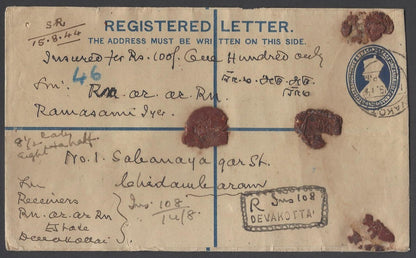 S.R.
15.8.44
REGISTERED LETTER.
THE ADDRESS MUST BE WRITTEN ON THIS SIDE.
Insured for Rs. 100/- One Hundred only
46
Rm. ar. ar. Rm
Ramasami Iyer.
8 1/2
Eight & a half
No. 1. Sabanayagar St.
Chidambaram
Receivers
Rm. ar. ar Rm
Estate
Devakottai
Ins: 108
14/8
R Ins 108
DEVAKOTTAI